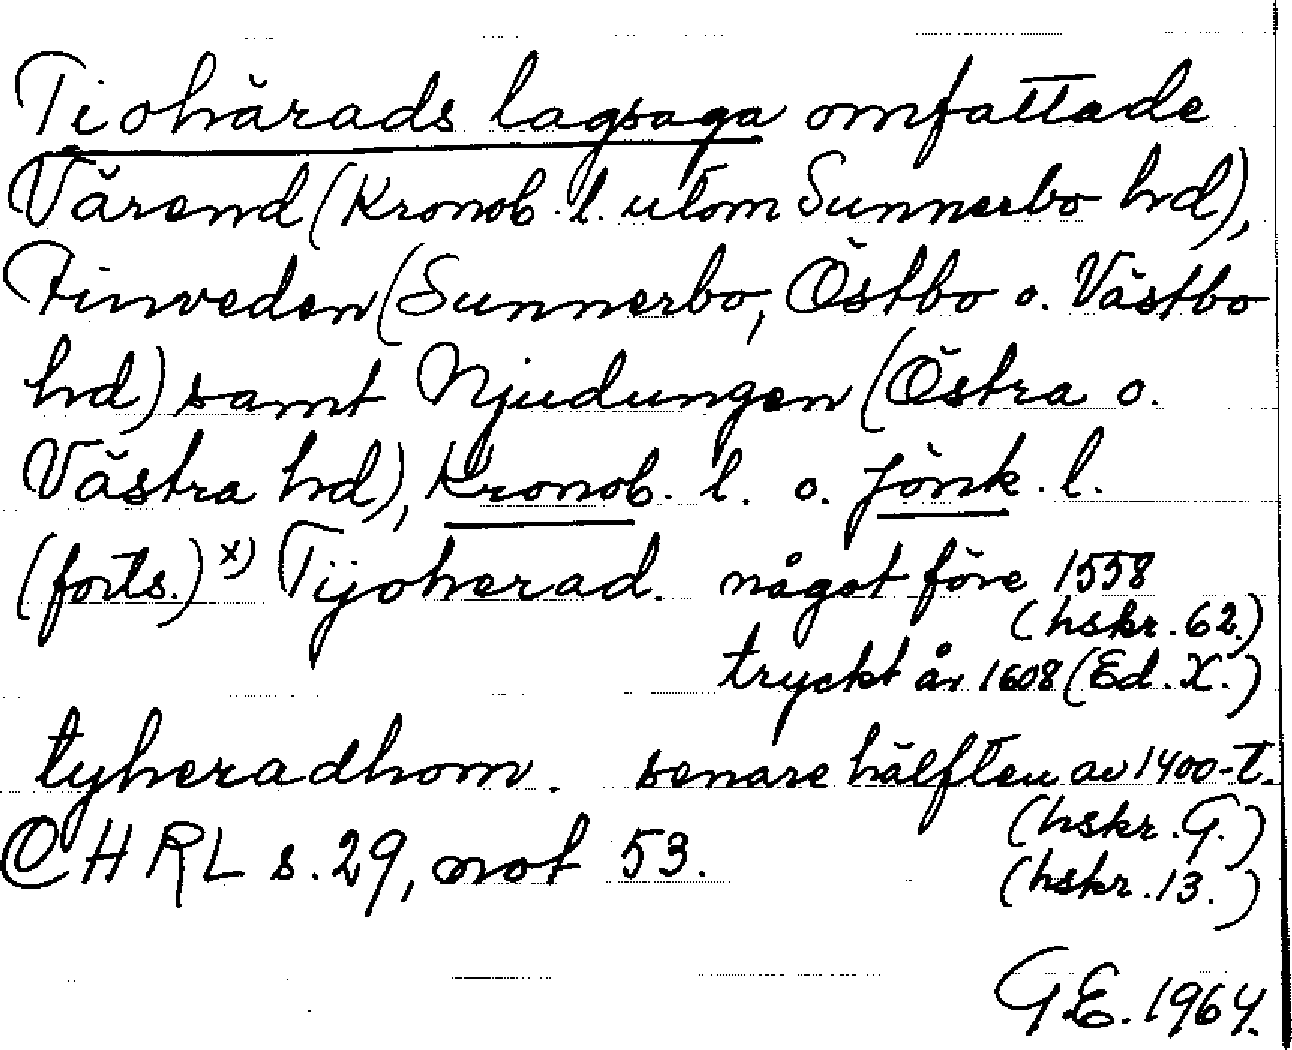 Tiohärads lagsaga omfattade
Värend (Kronob. l. utom Sunnerbo hd),
Finveden (Sunnerbo, Östbo o. Västbo
hd) samt Njudungen (Östra o.
Västra hd), Kronob. l. o. Jönk. l.
(forts.) x) Tijoherad. något före 1558
(hskr. 62.)
tryckt år 1608 (Ed. X.)
tyheradhom. senare hälften av 1400-t.
(hskr. G.)
CHRL s. 29, not 53.
(hskr. 13.)
G.E. 1964.